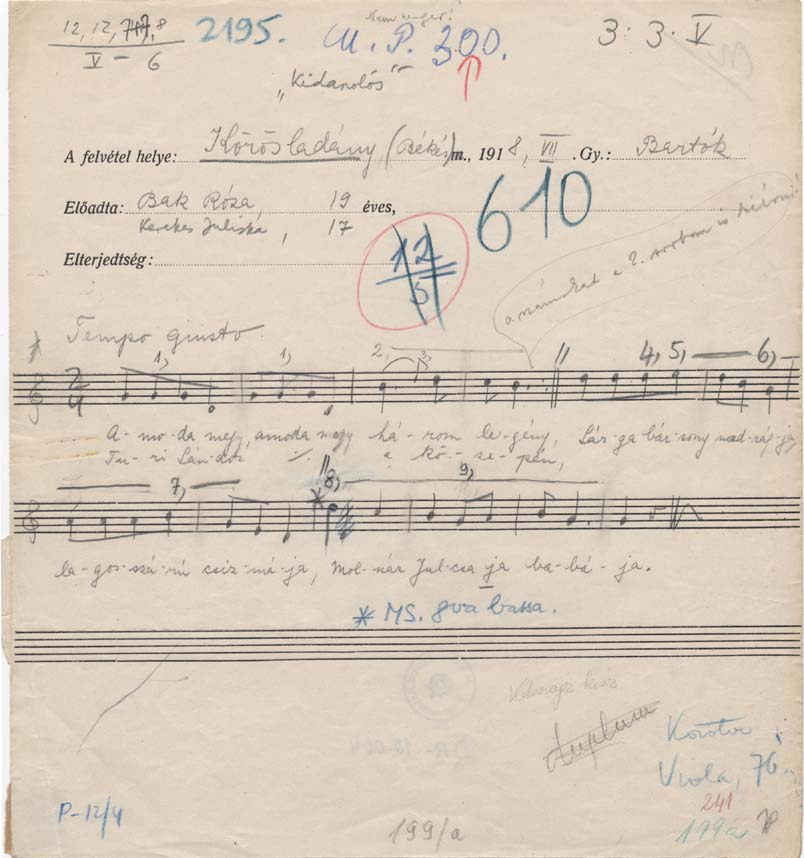 12, 12, 8 2195. M. P. 300. 3. 3. V
V – 6
"Kidanolós"
A felvétel helye: Körösladány (Békés)m., 1918, VII .Gy.: Bartók
Előadta: Bak Róza 19 éves, 610
Kerekes Juliska, 17
Elterjedtség: 12
5
a számokat a 2. sorban is kiírni!
Tempo giusto.
1, 1, 2, 3, 4, 5, 6,
2
4
A-mo-da megy, amoda megy há-rom le-gény, Sár-ga bár-sony nad-rág-ja,
Tu-ri Sán-dor ·/. a kö-ze-pén,
7, 8, 9,
la-gos-szá-rú csiz-má-ja, Mol-nár Jul-csa ja ba-bá-ja.
* MS. 8va bassa.
duplum
Viola, 76.
241
P-12/4 199/a 199a